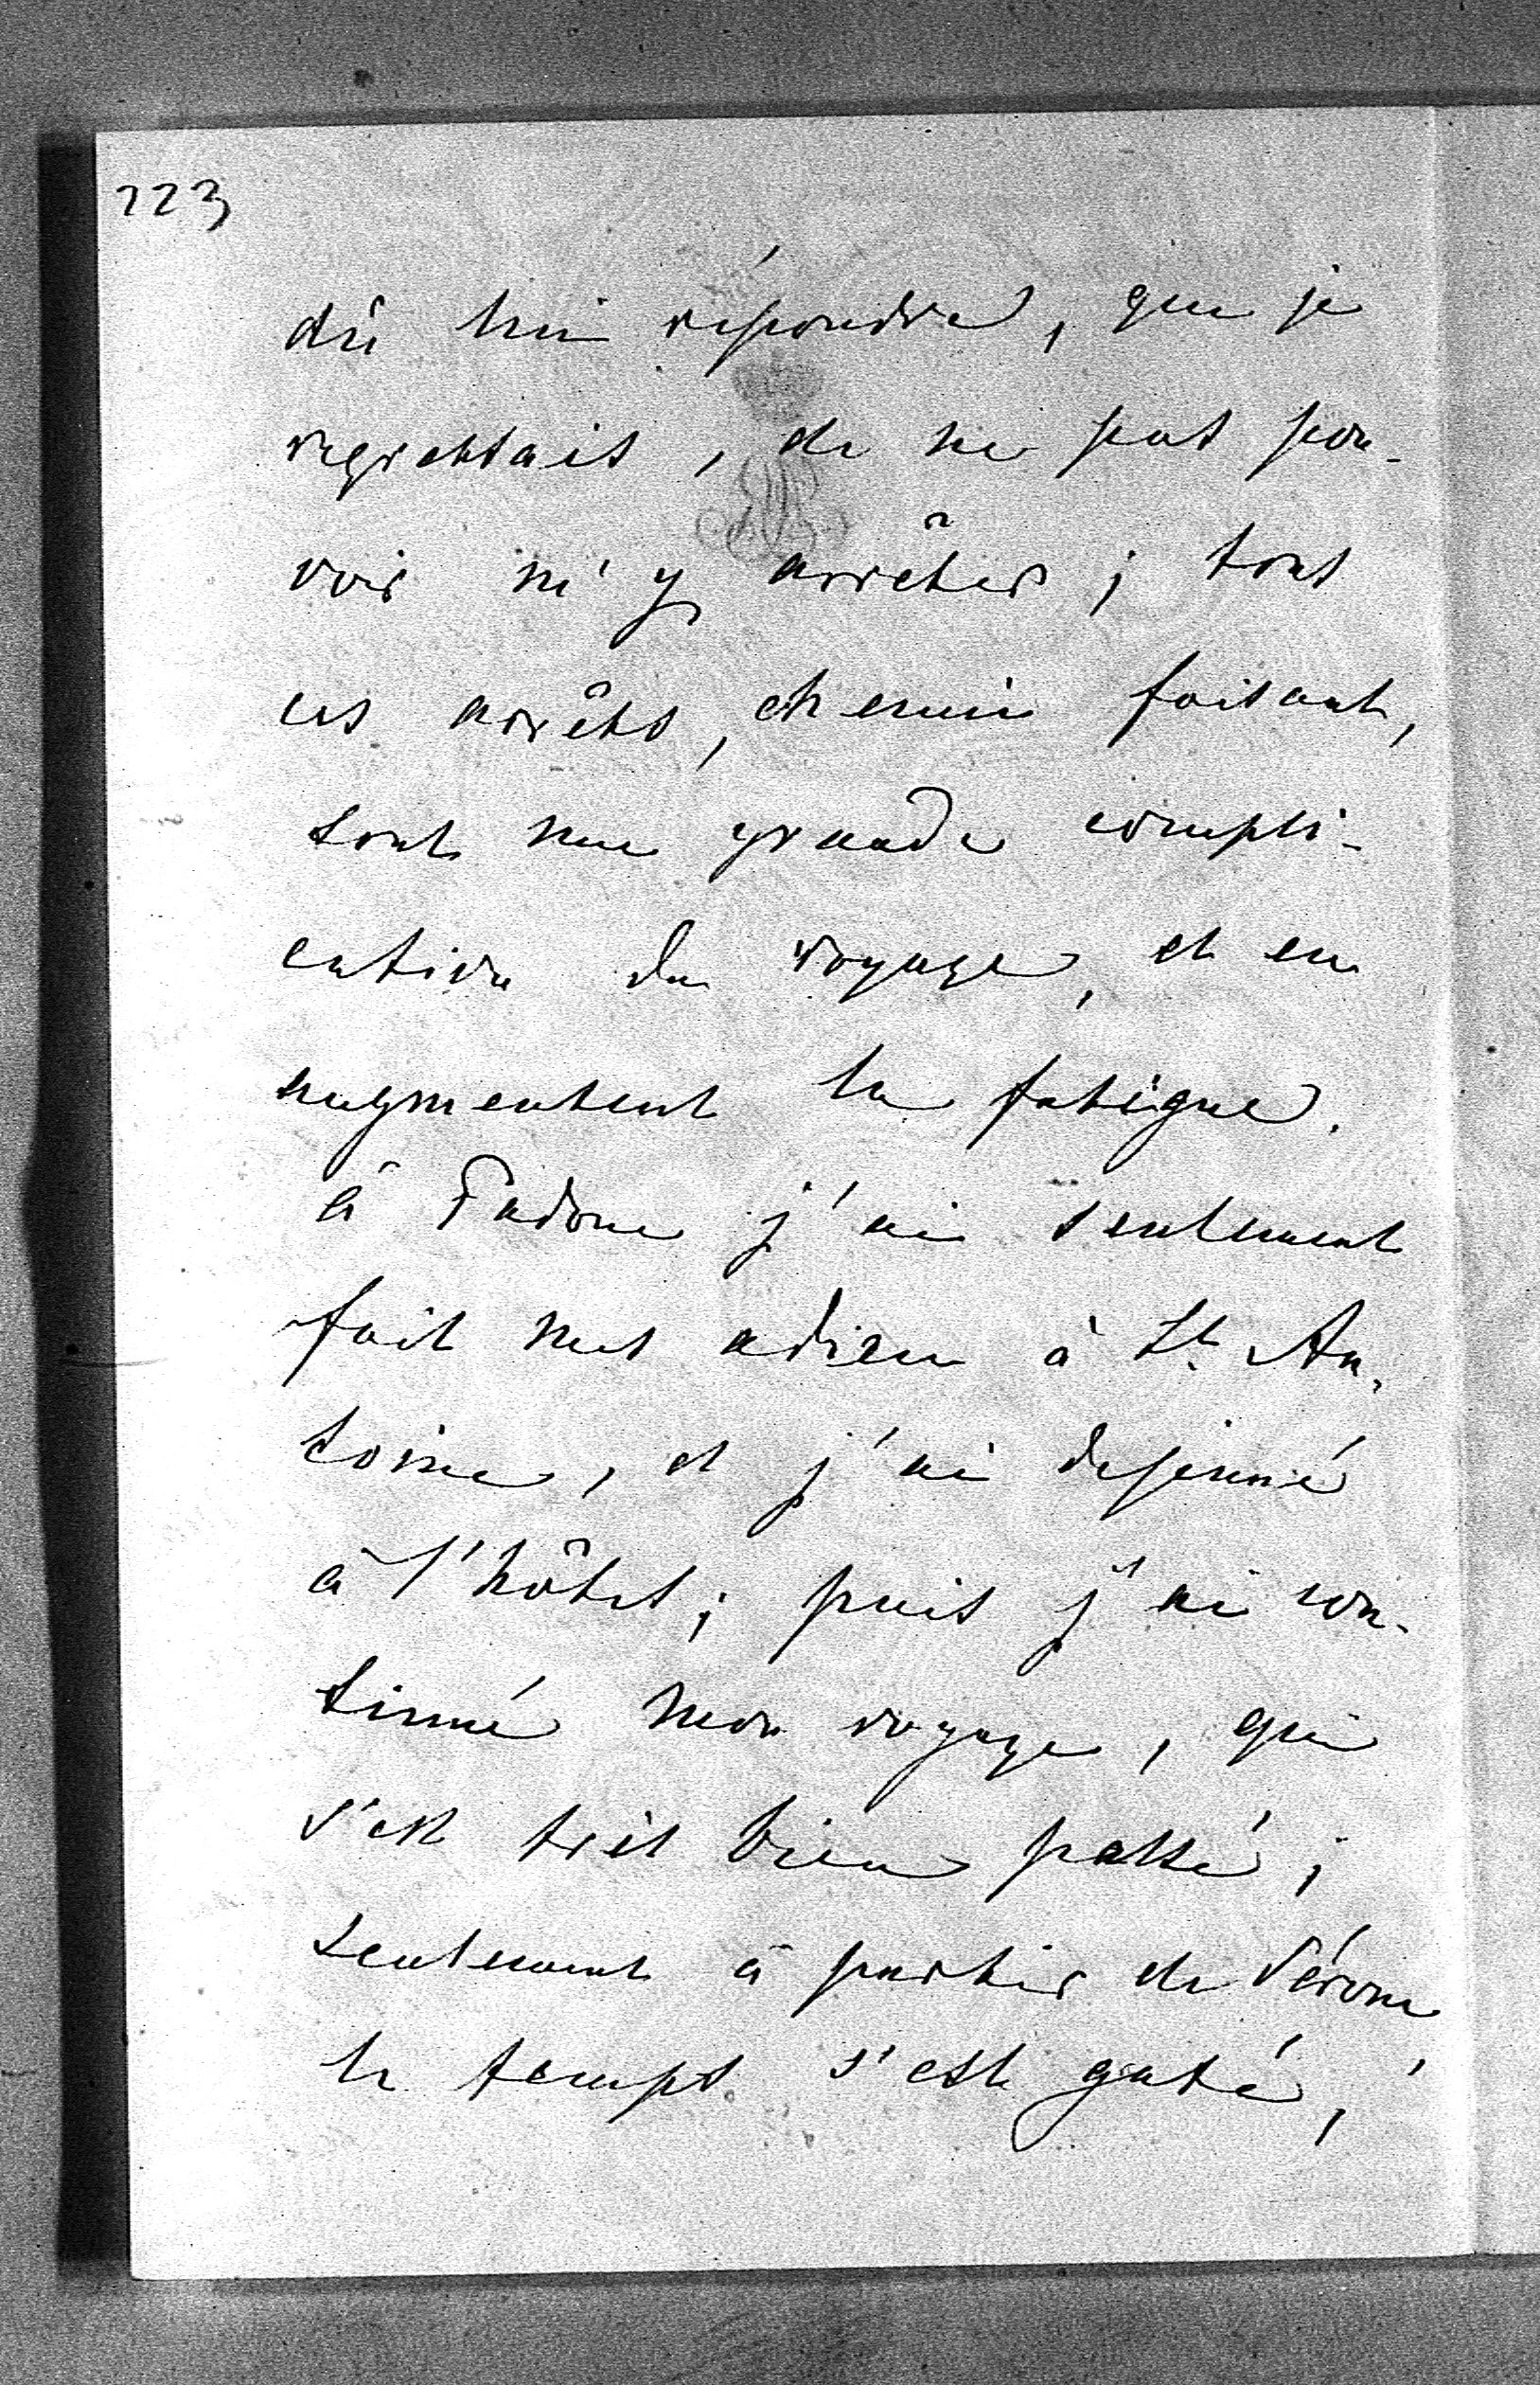 223
dû lui répondre, que je
regrettais, de ne pas pou-
voir m'y arrêter; tous
ces arrêts, chemin faisant,
sont une grande compli-
cation du voyage, et en
augmentent la fatigue.
à Padoue j'ai seulement
fait mes adieu à St. An-
toine, et j'ai dejeuné
à l'hôtel; puis j'ai con-
tinué mon voyage, qui
s'est très bien passé;
seulement à partir de Vérone,
le temps s'est gaté,